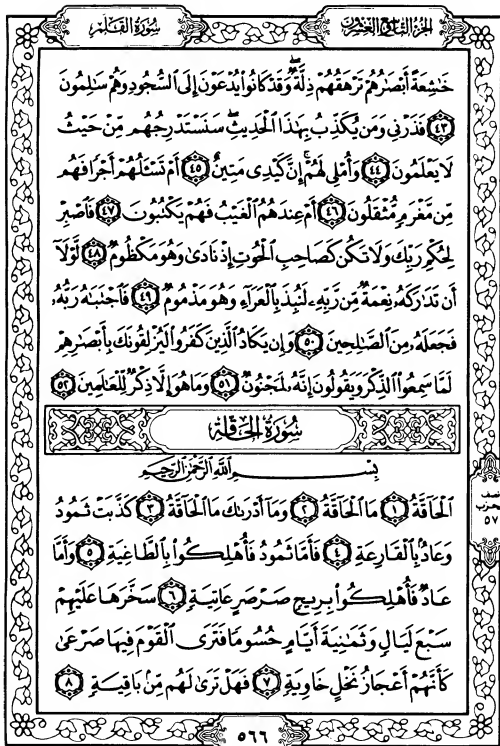 سُورَةُ القَلَمِ
الجُزْءُ التَّاسِعُ وَالعِشْرُونَ
خَٰشِعَةً أَبْصَٰرُهُمْ تَرْهَقُهُمْ ذِلَّةٌ ۖ وَقَدْ كَانُوا۟ يُدْعَوْنَ إِلَى ٱلسُّجُودِ وَهُمْ سَٰلِمُونَ
﴿٤٣﴾ فَذَرْنِى وَمَن يُكَذِّبُ بِهَٰذَا ٱلْحَدِيثِ ۖ سَنَسْتَدْرِجُهُم مِّنْ حَيْثُ
لَا يَعْلَمُونَ ﴿٤٤﴾ وَأُمْلِى لَهُمْ ۚ إِنَّ كَيْدِى مَتِينٌ ﴿٤٥﴾ أَمْ تَسْـَٔلُهُمْ أَجْرًا فَهُم
مِّن مَّغْرَمٍ مُّثْقَلُونَ ﴿٤٦﴾ أَمْ عِندَهُمُ ٱلْغَيْبُ فَهُمْ يَكْتُبُونَ ﴿٤٧﴾ فَٱصْبِرْ
لِحُكْمِ رَبِّكَ وَلَا تَكُن كَصَاحِبِ ٱلْحُوتِ إِذْ نَادَىٰ وَهُوَ مَكْظُومٌ ﴿٤٨﴾ لَّوْلَآ
أَن تَدَٰرَكَهُۥ نِعْمَةٌ مِّن رَّبِّهِۦ لَنُبِذَ بِٱلْعَرَآءِ وَهُوَ مَذْمُومٌ ﴿٤٩﴾ فَٱجْتَبَٰهُ رَبُّهُۥ
فَجَعَلَهُۥ مِنَ ٱلصَّٰلِحِينَ ﴿٥٠﴾ وَإِن يَكَادُ ٱلَّذِينَ كَفَرُوا۟ لَيُزْلِقُونَكَ بِأَبْصَٰرِهِمْ
لَمَّا سَمِعُوا۟ ٱلذِّكْرَ وَيَقُولُونَ إِنَّهُۥ لَمَجْنُونٌ ﴿٥١﴾ وَمَا هُوَ إِلَّا ذِكْرٌ لِّلْعَٰلَمِينَ ﴿٥٢﴾
سُورَةُ الحَاقَّةِ
بِسْمِ ٱللَّهِ ٱلرَّحْمَٰنِ ٱلرَّحِيمِ
ٱلْحَآقَّةُ ﴿١﴾ مَا ٱلْحَآقَّةُ ﴿٢﴾ وَمَآ أَدْرَىٰكَ مَا ٱلْحَآقَّةُ ﴿٣﴾ كَذَّبَتْ ثَمُودُ
وَعَادٌۢ بِٱلْقَارِعَةِ ﴿٤﴾ فَأَمَّا ثَمُودُ فَأُهْلِكُوا۟ بِٱلطَّاغِيَةِ ﴿٥﴾ وَأَمَّا
عَادٌ فَأُهْلِكُوا۟ بِرِيحٍ صَرْصَرٍ عَاتِيَةٍ ﴿٦﴾ سَخَّرَهَا عَلَيْهِمْ
سَبْعَ لَيَالٍ وَثَمَٰنِيَةَ أَيَّامٍ حُسُومًا فَتَرَى ٱلْقَوْمَ فِيهَا صَرْعَىٰ
كَأَنَّهُمْ أَعْجَازُ نَخْلٍ خَاوِيَةٍ ﴿٧﴾ فَهَلْ تَرَىٰ لَهُم مِّنۢ بَاقِيَةٍ ﴿٨﴾
٥٧
٥٦٦